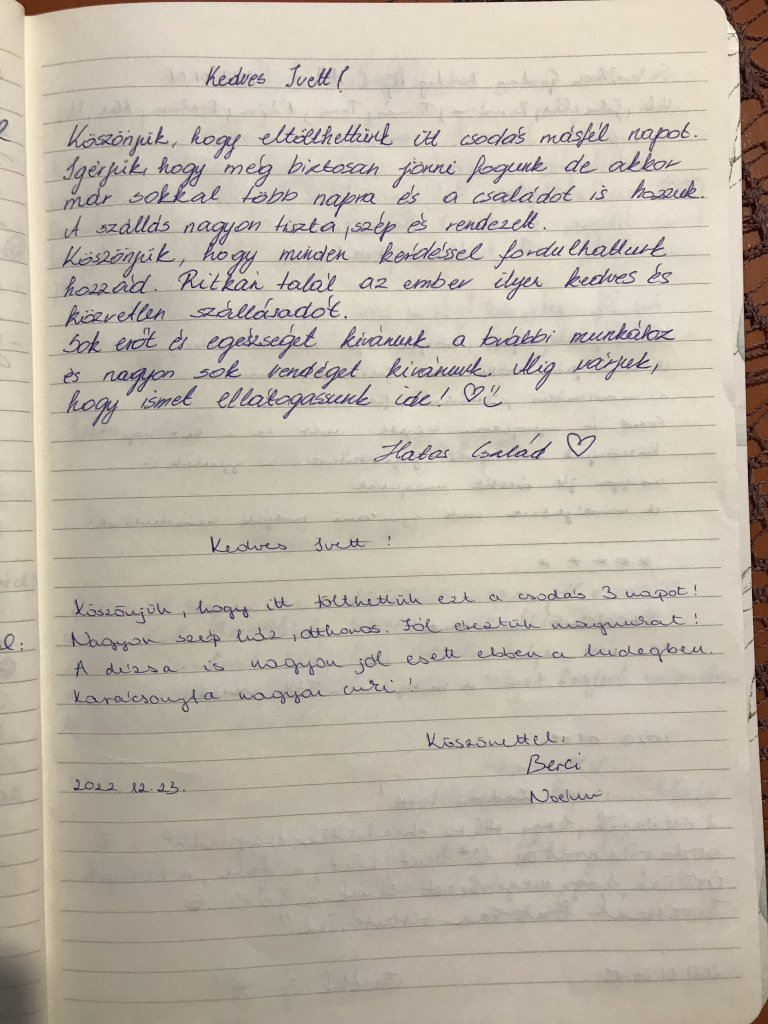 Kedves Ivett!
Köszönjük, hogy eltölthettünk itt csodás másfél napot.
Igérjük, hogy még biztosan jönni fogunk de akkor
már sokkal több napra és a családot is hozzuk.
A szállás nagyon tiszta, szép és rendezett.
Köszönjük, hogy minden kérdéssel fordulhattunk
hozzád. Ritkán talál az ember ilyen kedves és
közvetlen szállásadót.
Sok erőt és egészséget kívánunk a további munkához
és nagyon sok vendéget kívánunk. Alig várjuk,
hogy ismét ellátogassunk ide! ♡
Hatás Család ♡
Kedves Ivett!
Köszönjük, hogy itt tölthettük ezt a csodás 3 napot!
Nagyon szép ház, otthonos. Jól éreztük magunkat!
A dézsa is nagyon jól esett ebben a hidegben.
Karácsonyfa nagyon cuki!
Köszönettel:
Berci
2022.12.23.
Noémi